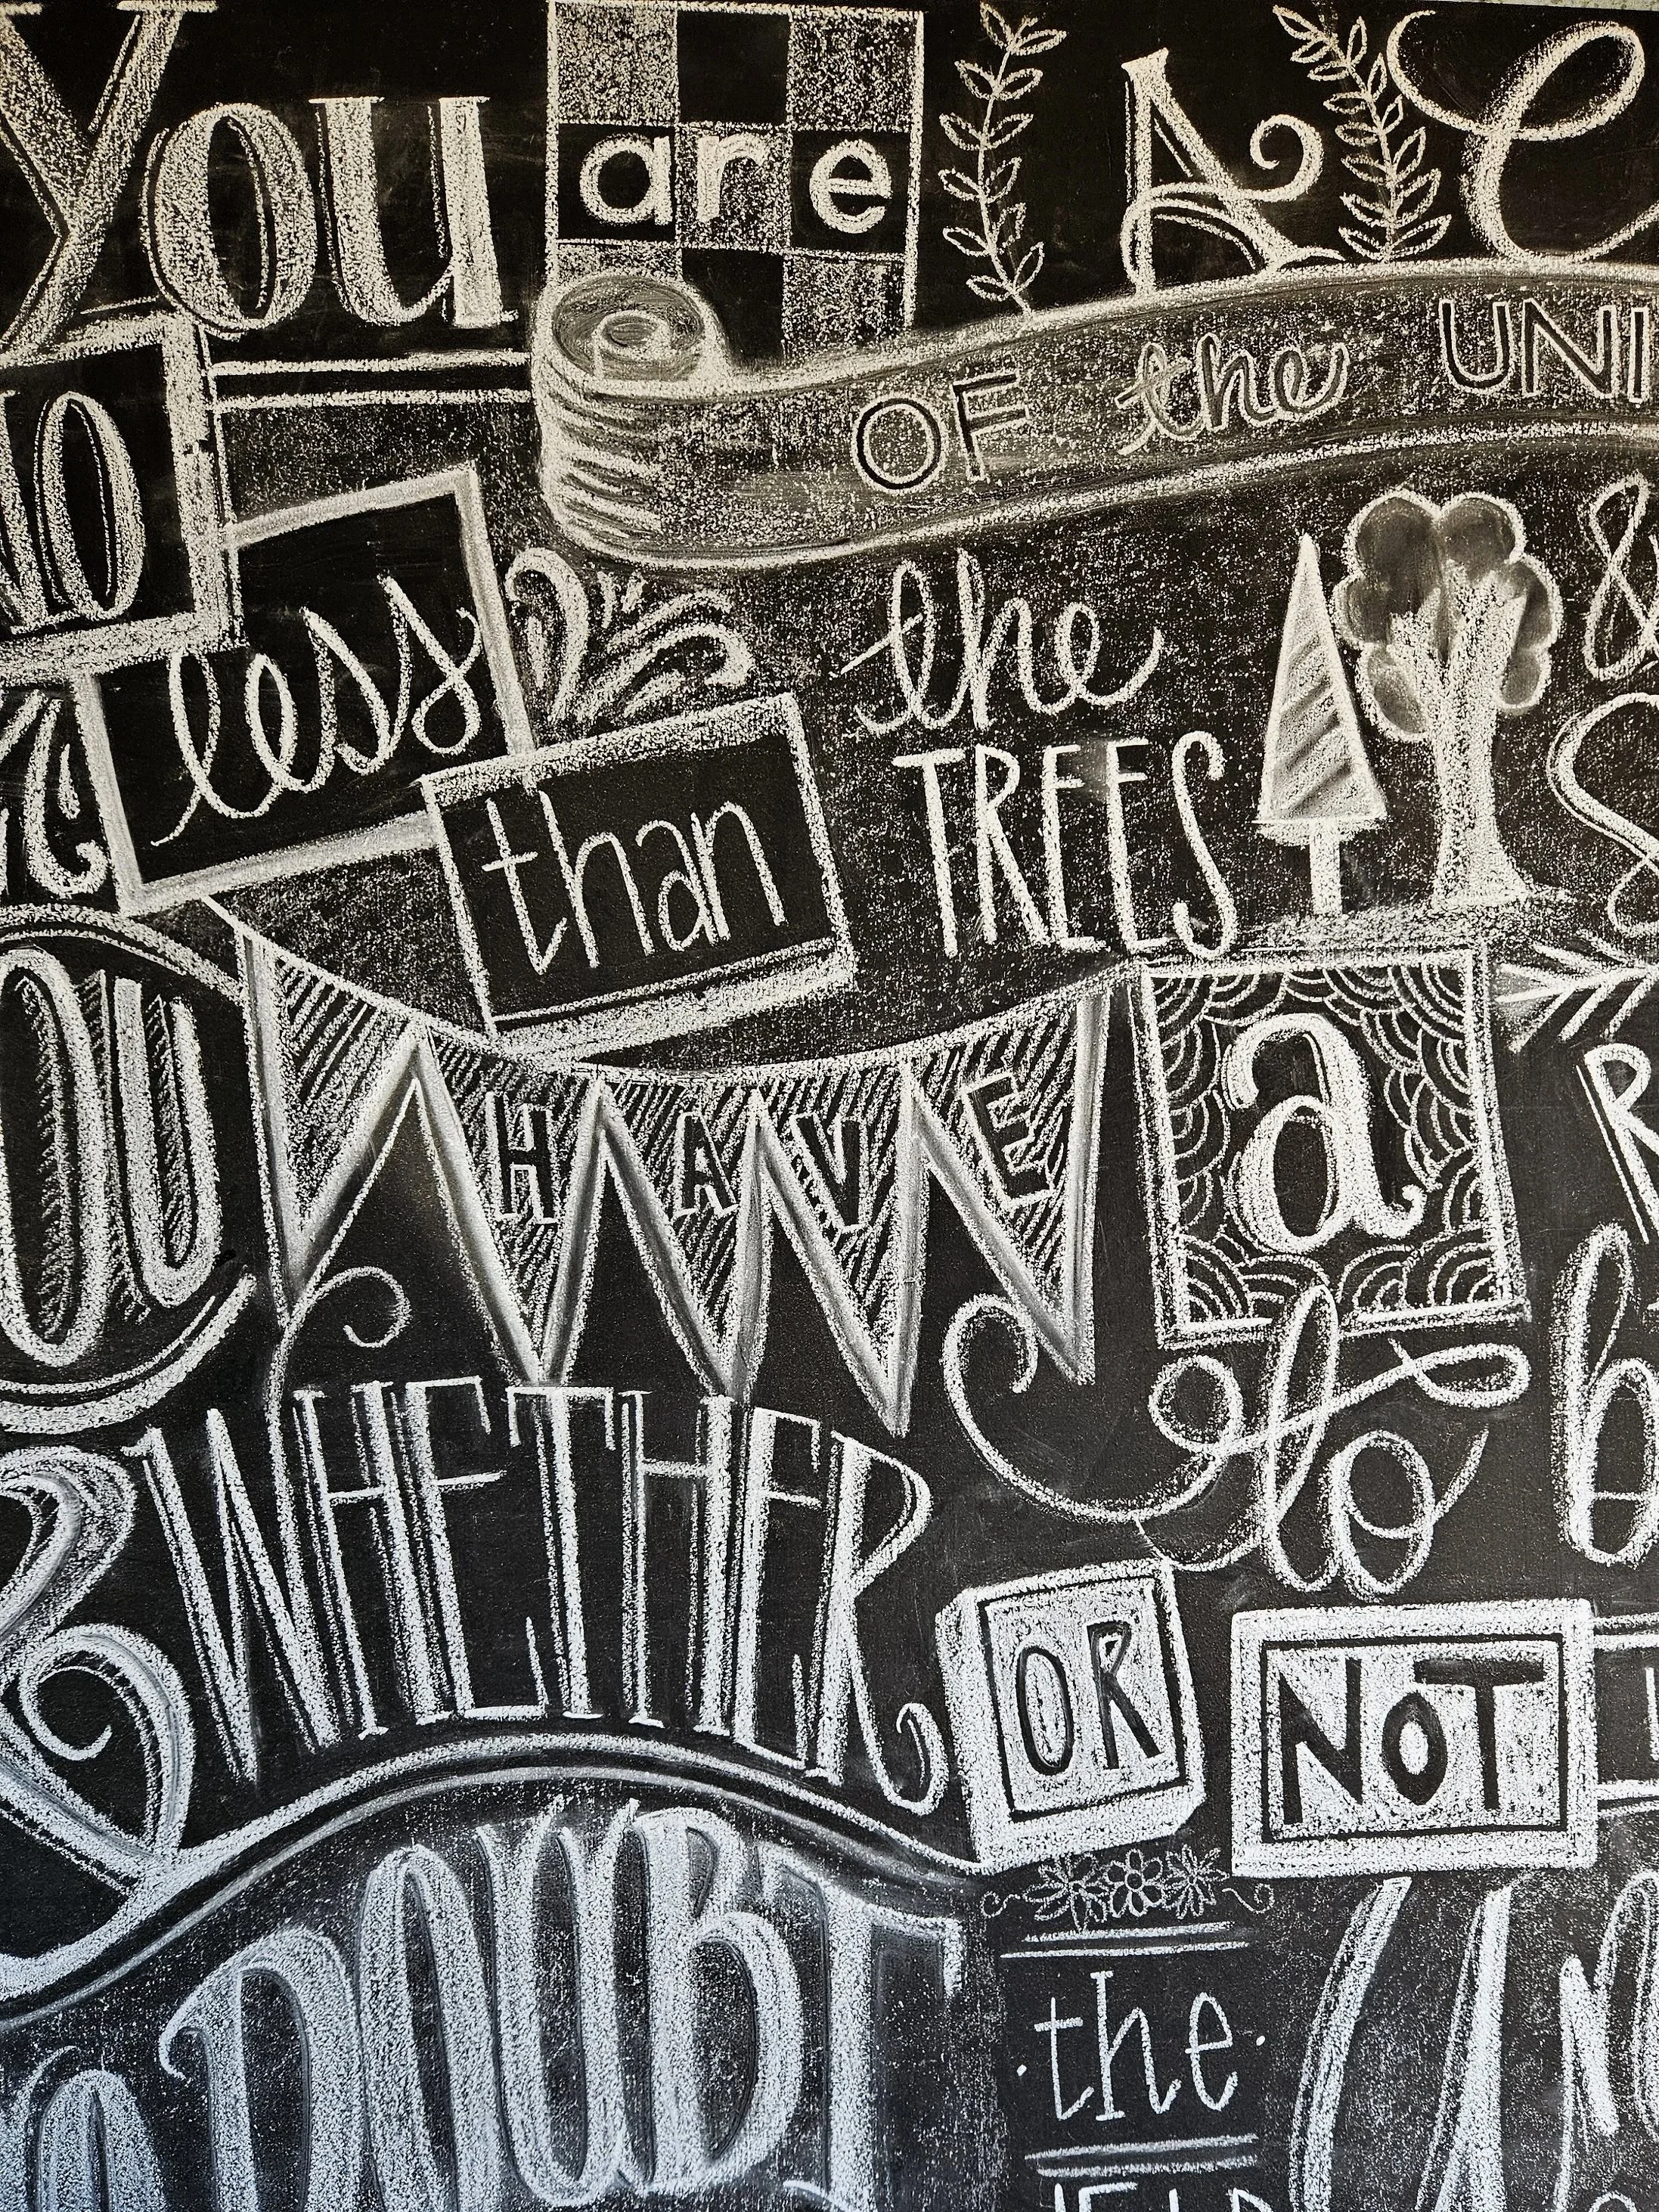 You are A C
OF the UNI
NO less than the TREES &
S
OU HAVE a R
to b
WHETHER OR NOT
DOUBT the UN